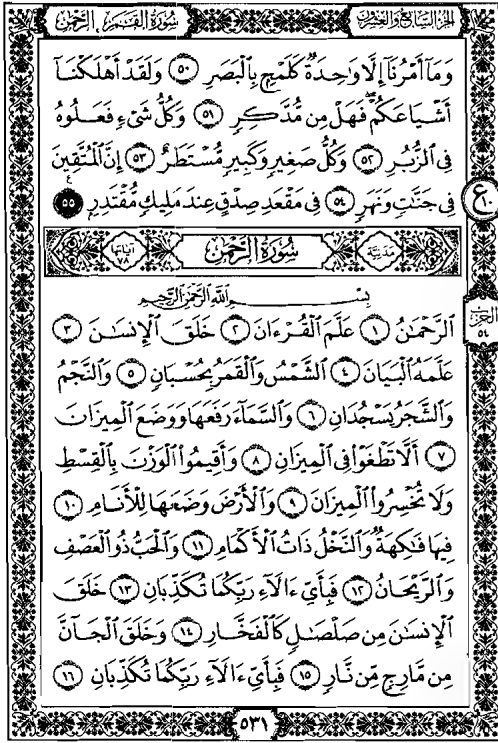 الجزء السابع والعشرون سورة القمر ، الرحمن
وَمَآ أَمْرُنَآ إِلَّا وَٰحِدَةٌ كَلَمْحٍۭ بِٱلْبَصَرِ ٥٠ وَلَقَدْ أَهْلَكْنَآ
أَشْيَاعَكُمْ فَهَلْ مِن مُّدَّكِرٍ ٥١ وَكُلُّ شَىْءٍ فَعَلُوهُ
فِى ٱلزُّبُرِ ٥٢ وَكُلُّ صَغِيرٍ وَكَبِيرٍ مُّسْتَطَرٌ ٥٣ إِنَّ ٱلْمُتَّقِينَ
فِى جَنَّٰتٍ وَنَهَرٍ ٥٤ فِى مَقْعَدِ صِدْقٍ عِندَ مَلِيكٍ مُّقْتَدِرٍۭ ٥٥
ع ١٠
مَدَنيّة سُورَةُ الرَّحْمٰن آياتها ٧٨
بِسْمِ ٱللَّهِ ٱلرَّحْمَٰنِ ٱلرَّحِيمِ
الحزب ٥٤
ٱلرَّحْمَٰنُ ١ عَلَّمَ ٱلْقُرْءَانَ ٢ خَلَقَ ٱلْإِنسَٰنَ ٣
عَلَّمَهُ ٱلْبَيَانَ ٤ ٱلشَّمْسُ وَٱلْقَمَرُ بِحُسْبَانٍ ٥ وَٱلنَّجْمُ
وَٱلشَّجَرُ يَسْجُدَانِ ٦ وَٱلسَّمَآءَ رَفَعَهَا وَوَضَعَ ٱلْمِيزَانَ
٧ أَلَّا تَطْغَوْا۟ فِى ٱلْمِيزَانِ ٨ وَأَقِيمُوا۟ ٱلْوَزْنَ بِٱلْقِسْطِ
وَلَا تُخْسِرُوا۟ ٱلْمِيزَانَ ٩ وَٱلْأَرْضَ وَضَعَهَا لِلْأَنَامِ ١٠
فِيهَا فَٰكِهَةٌ وَٱلنَّخْلُ ذَاتُ ٱلْأَكْمَامِ ١١ وَٱلْحَبُّ ذُو ٱلْعَصْفِ
وَٱلرَّيْحَانُ ١٢ فَبِأَىِّ ءَالَآءِ رَبِّكُمَا تُكَذِّبَانِ ١٣ خَلَقَ
ٱلْإِنسَٰنَ مِن صَلْصَٰلٍ كَٱلْفَخَّارِ ١٤ وَخَلَقَ ٱلْجَآنَّ
مِن مَّارِجٍ مِّن نَّارٍ ١٥ فَبِأَىِّ ءَالَآءِ رَبِّكُمَا تُكَذِّبَانِ ١٦
٥٣١